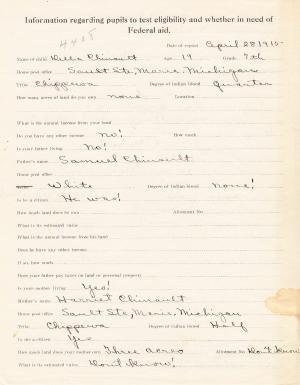 Information regarding pupils to test eligibility and whether in need of
Federal aid.
4405
Date of report April 28 1910
Name of child Della Chinault Age 19 Grade 7th
Home post office Sault Ste, Marie, Michigan
Tribe Chippewa Degree of Indian blood Quarter
How many acres of land do you own none Location
What is the annual income from your land
Do you have any other income No! How much
Is your father living? No!
Father's name Samuel Chinault
Home post office
White Degree of Indian blood None!
Is he a citizen? He was!
How much land does he own Allotment No.
What is its estimated value
What is the annual income from his land
Does he have any other income
If so, how much
Does your father pay taxes on land or personal property
Is your mother living? Yes!
Mother's name Harriet Chinault
Home post office Sault Ste, Marie, Michigan
Tribe Chippewa Degree of Indian blood Half
Is she a citizen Yes
How much land does your mother own Three acres Allotment No. Don't know!
What is its estimated value Don't know!